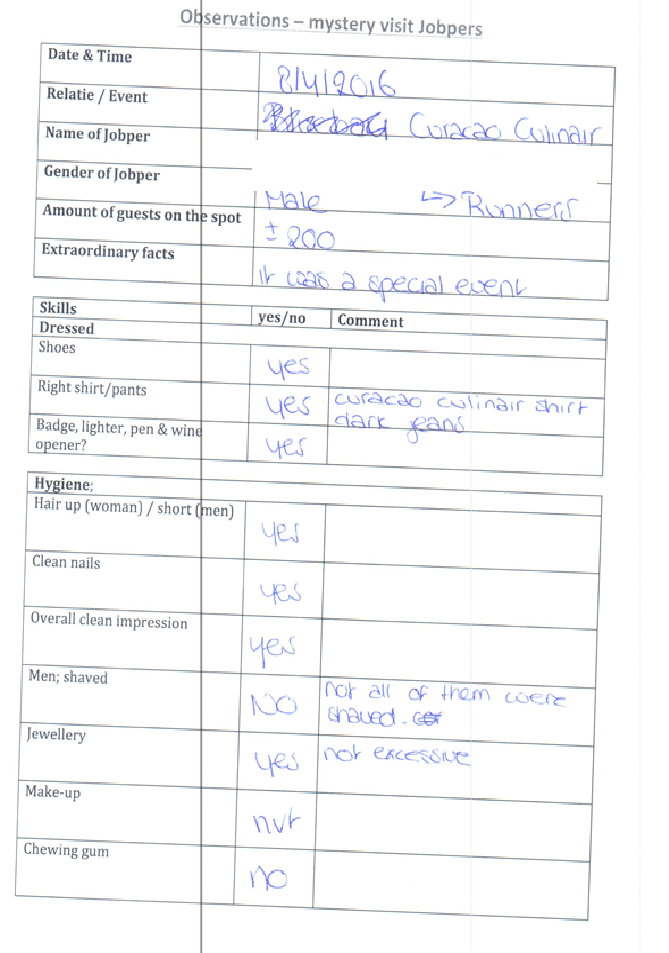 Observations – mystery visit Jobpers
Date & Time 8/4/2016
Relatie / Event Curacao Culinair
Name of Jobper
Gender of Jobper Male ↳> Runners
Amount of guests on the spot ± 200
Extraordinary facts it was a special event
Skills yes/no Comment
Dressed
Shoes yes
Right shirt/pants yes curacao culinair shirt
dark jeans
Badge, lighter, pen & wine
opener? yes
Hygiene;
Hair up (woman) / short (men) yes
Clean nails yes
Overall clean impression yes
Men; shaved NO not all of them were
shaved.
Jewellery yes not excessive
Make-up nvt
Chewing gum no